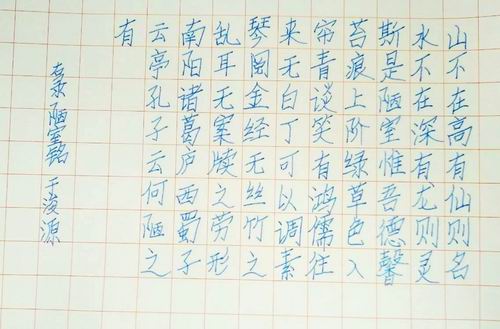 山不在高有仙则名
水不在深有龙则灵
斯是陋室惟吾德馨
苔痕上阶绿草色入
帘青谈笑有鸿儒往
来无白丁可以调素
琴阅金经无丝竹之
乱耳无案牍之劳形
南阳诸葛庐西蜀子
云亭孔子云何陋之
有
录陋室铭 于浚源